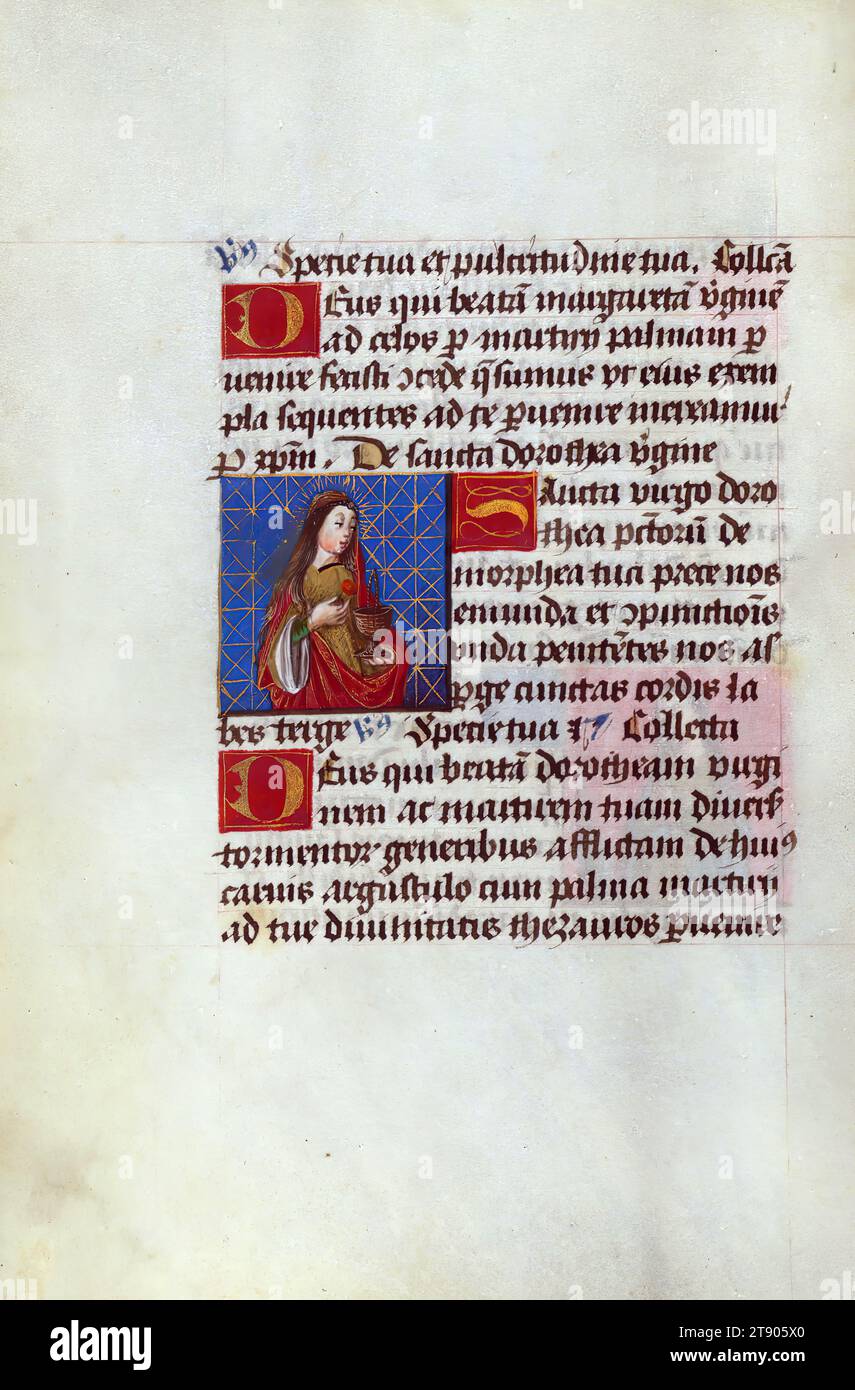 Specie tua et pulcritudine tua. Collcā
Deus qui beatā margaretā v̄gineē
ad celos p martyrij palmam p
uenire fecisti ɔcede q̄sumus vt eius exem
pla sequentes ad te puenire mereamur
p xpm̄. De sancta dorothea v̄gine
Sancta virgo doro
thea pctorū de
morphea tua prece nos
emunda et ɔpunctiōis
unda penitētes nos as
pge cunctas cordis la
bes terge Specie tua Collecta
Deus qui beatā dorotheam virgi
nem ac martirem tuam diuers
tormentor generibus afflictam de huiꝰ
carnis argustulo cum palma martirij
ad tue diuinitatis thezauros puenire
alamy
a
Image ID: 2T905X0
www.alamy.com